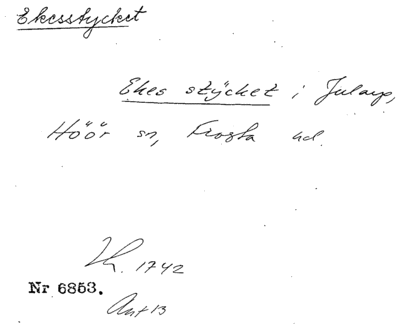 Ekesstycket
Ekes stÿcket i Jularp,
Höör sn, Frosta hd.
Lh. 1742
Nr 6853.
Ant 13